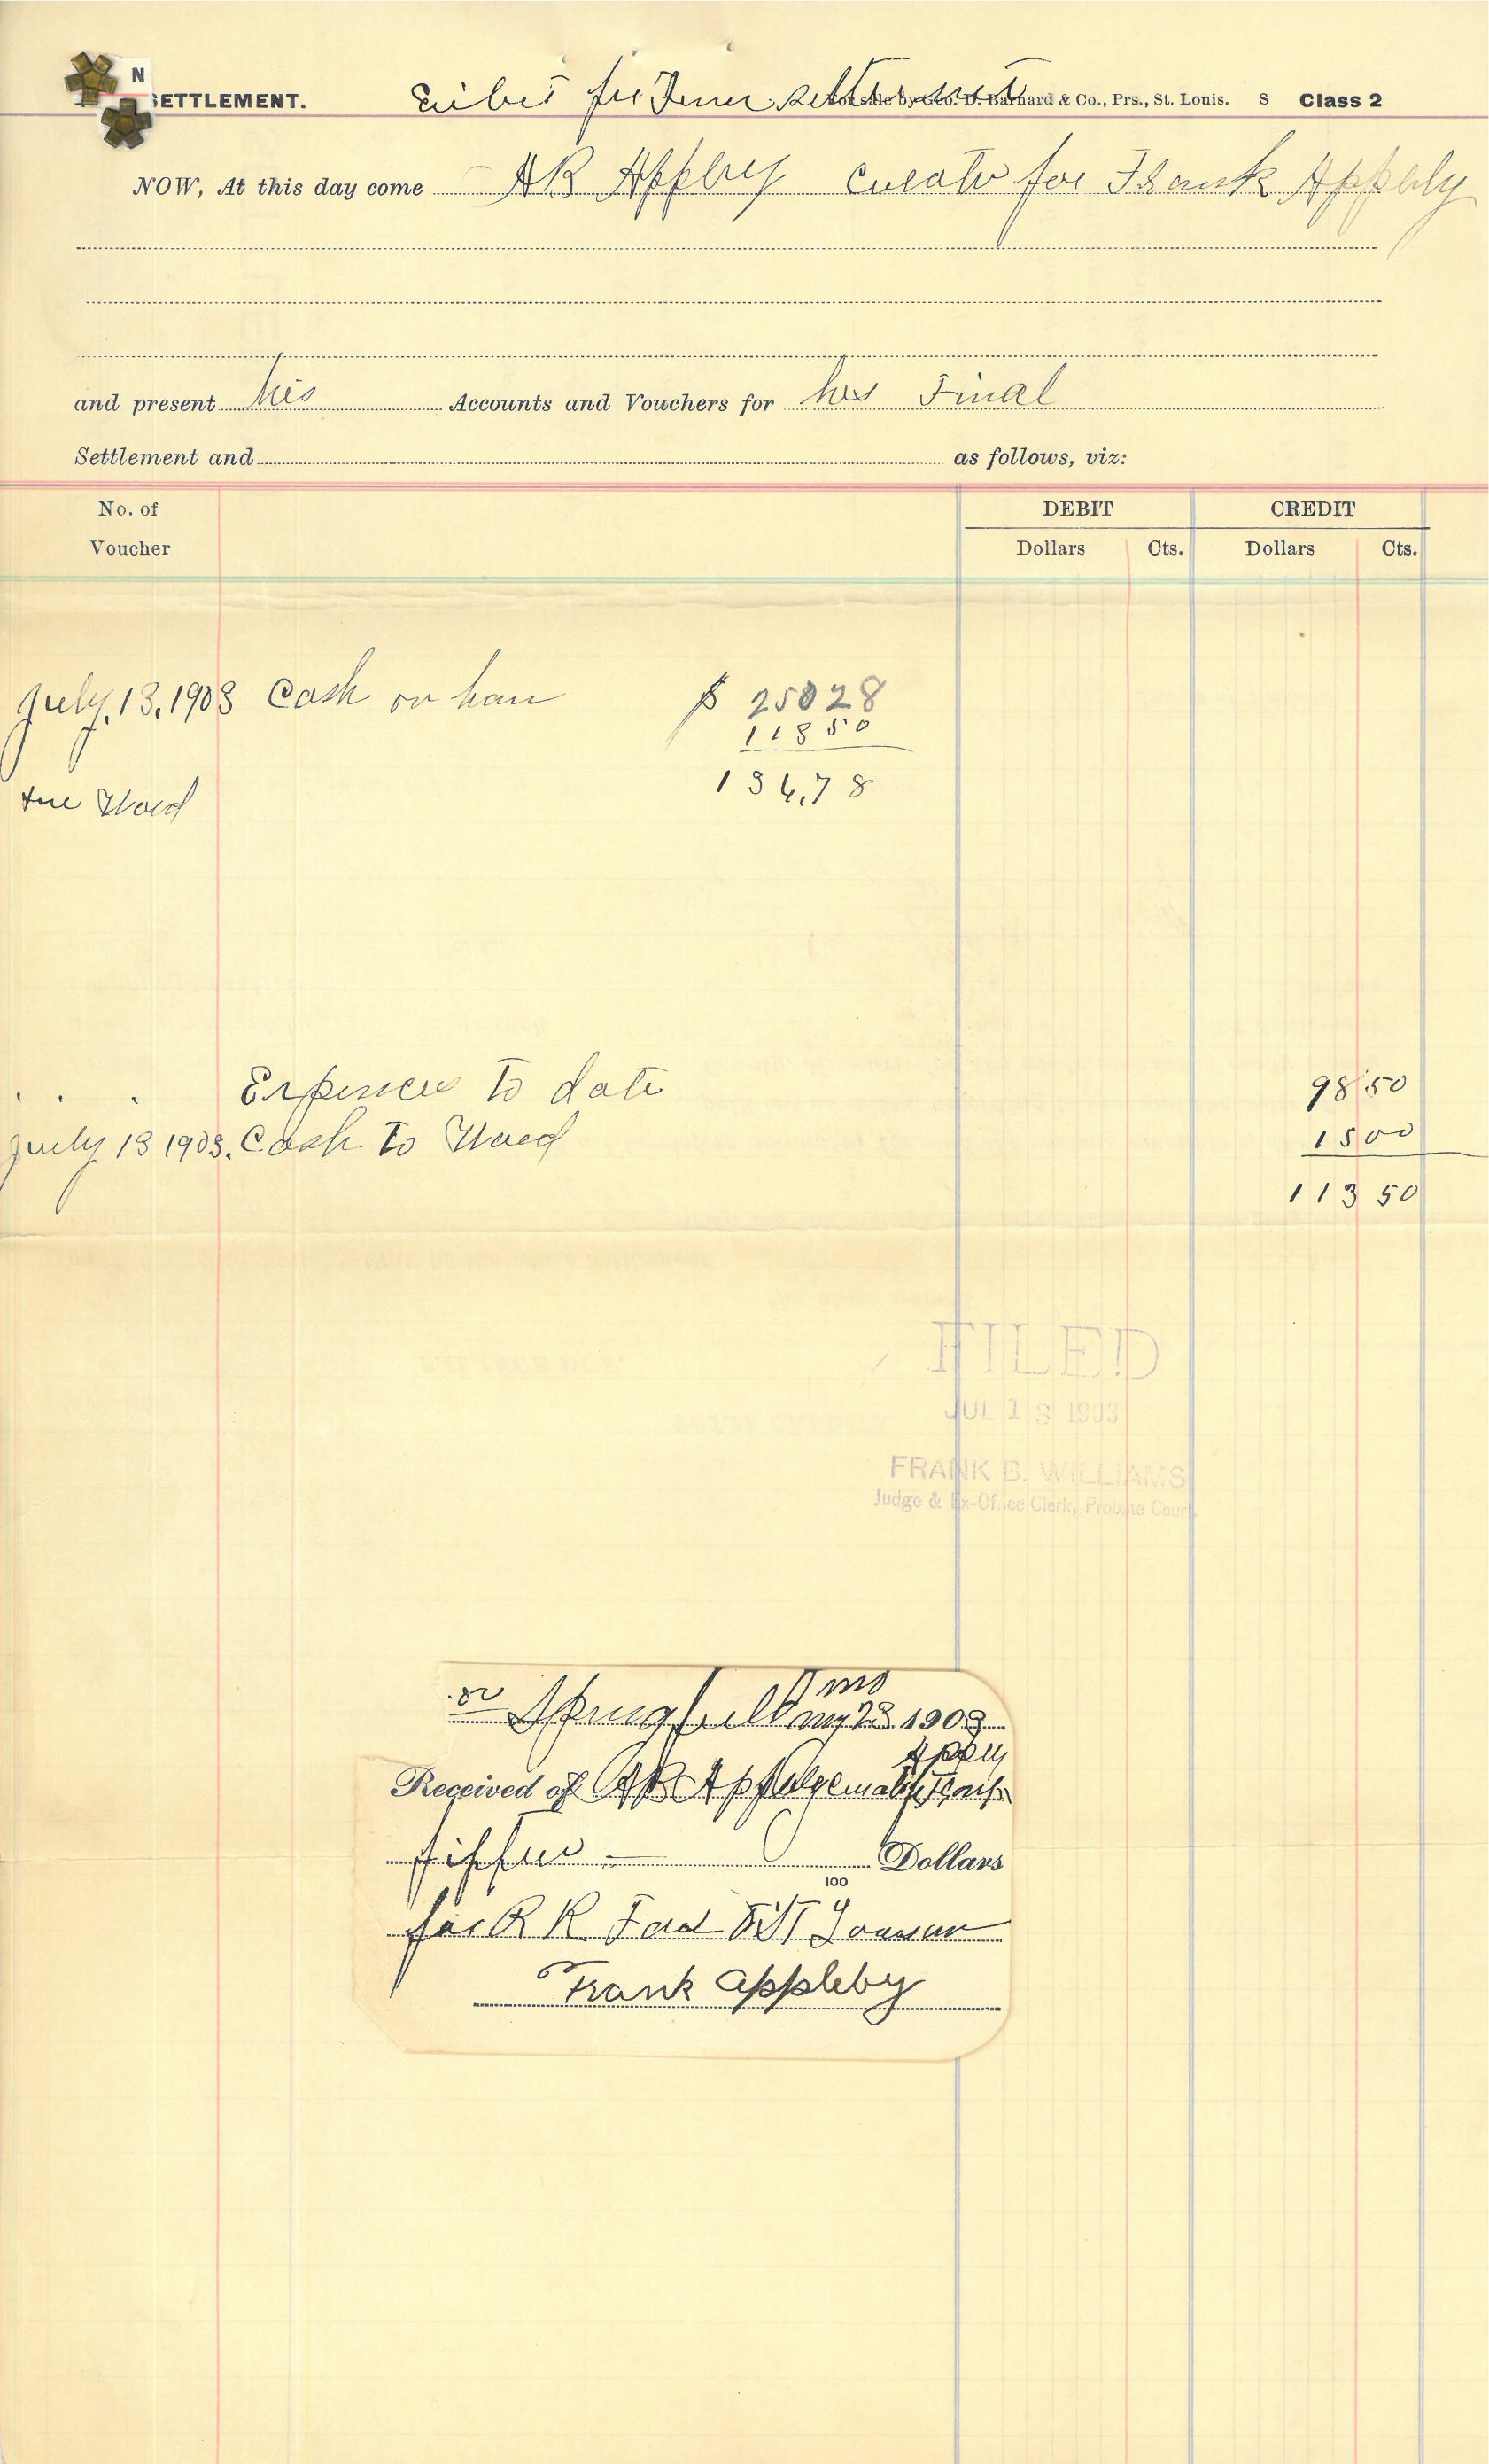 N
SETTLEMENT. for settlement For sale by Geo. D. Barnard & Co., Prs., St. Louis. S Class 2
NOW, At this day come AR Appleby Curator for Frank Appleby
and present his Accounts and Vouchers for his Final
Settlement and as follows, viz:
No. of Voucher DEBIT CREDIT
Dollars Cts. Dollars Cts.
July, 13, 1903 Cash on han $ 250 28
113 50
due Ward 136,78
Expences To date 98 50
July 13 1903. Cash To Ward 15 00
113 50
FILED
JUL 13 1903
FRANK B. WILLIAMS
Judge & Ex-Office Clerk, Probate Court.
Springfield Mo
23 1903
Received of AR Appleby
Dollars
100
for R R
Frank Appleby